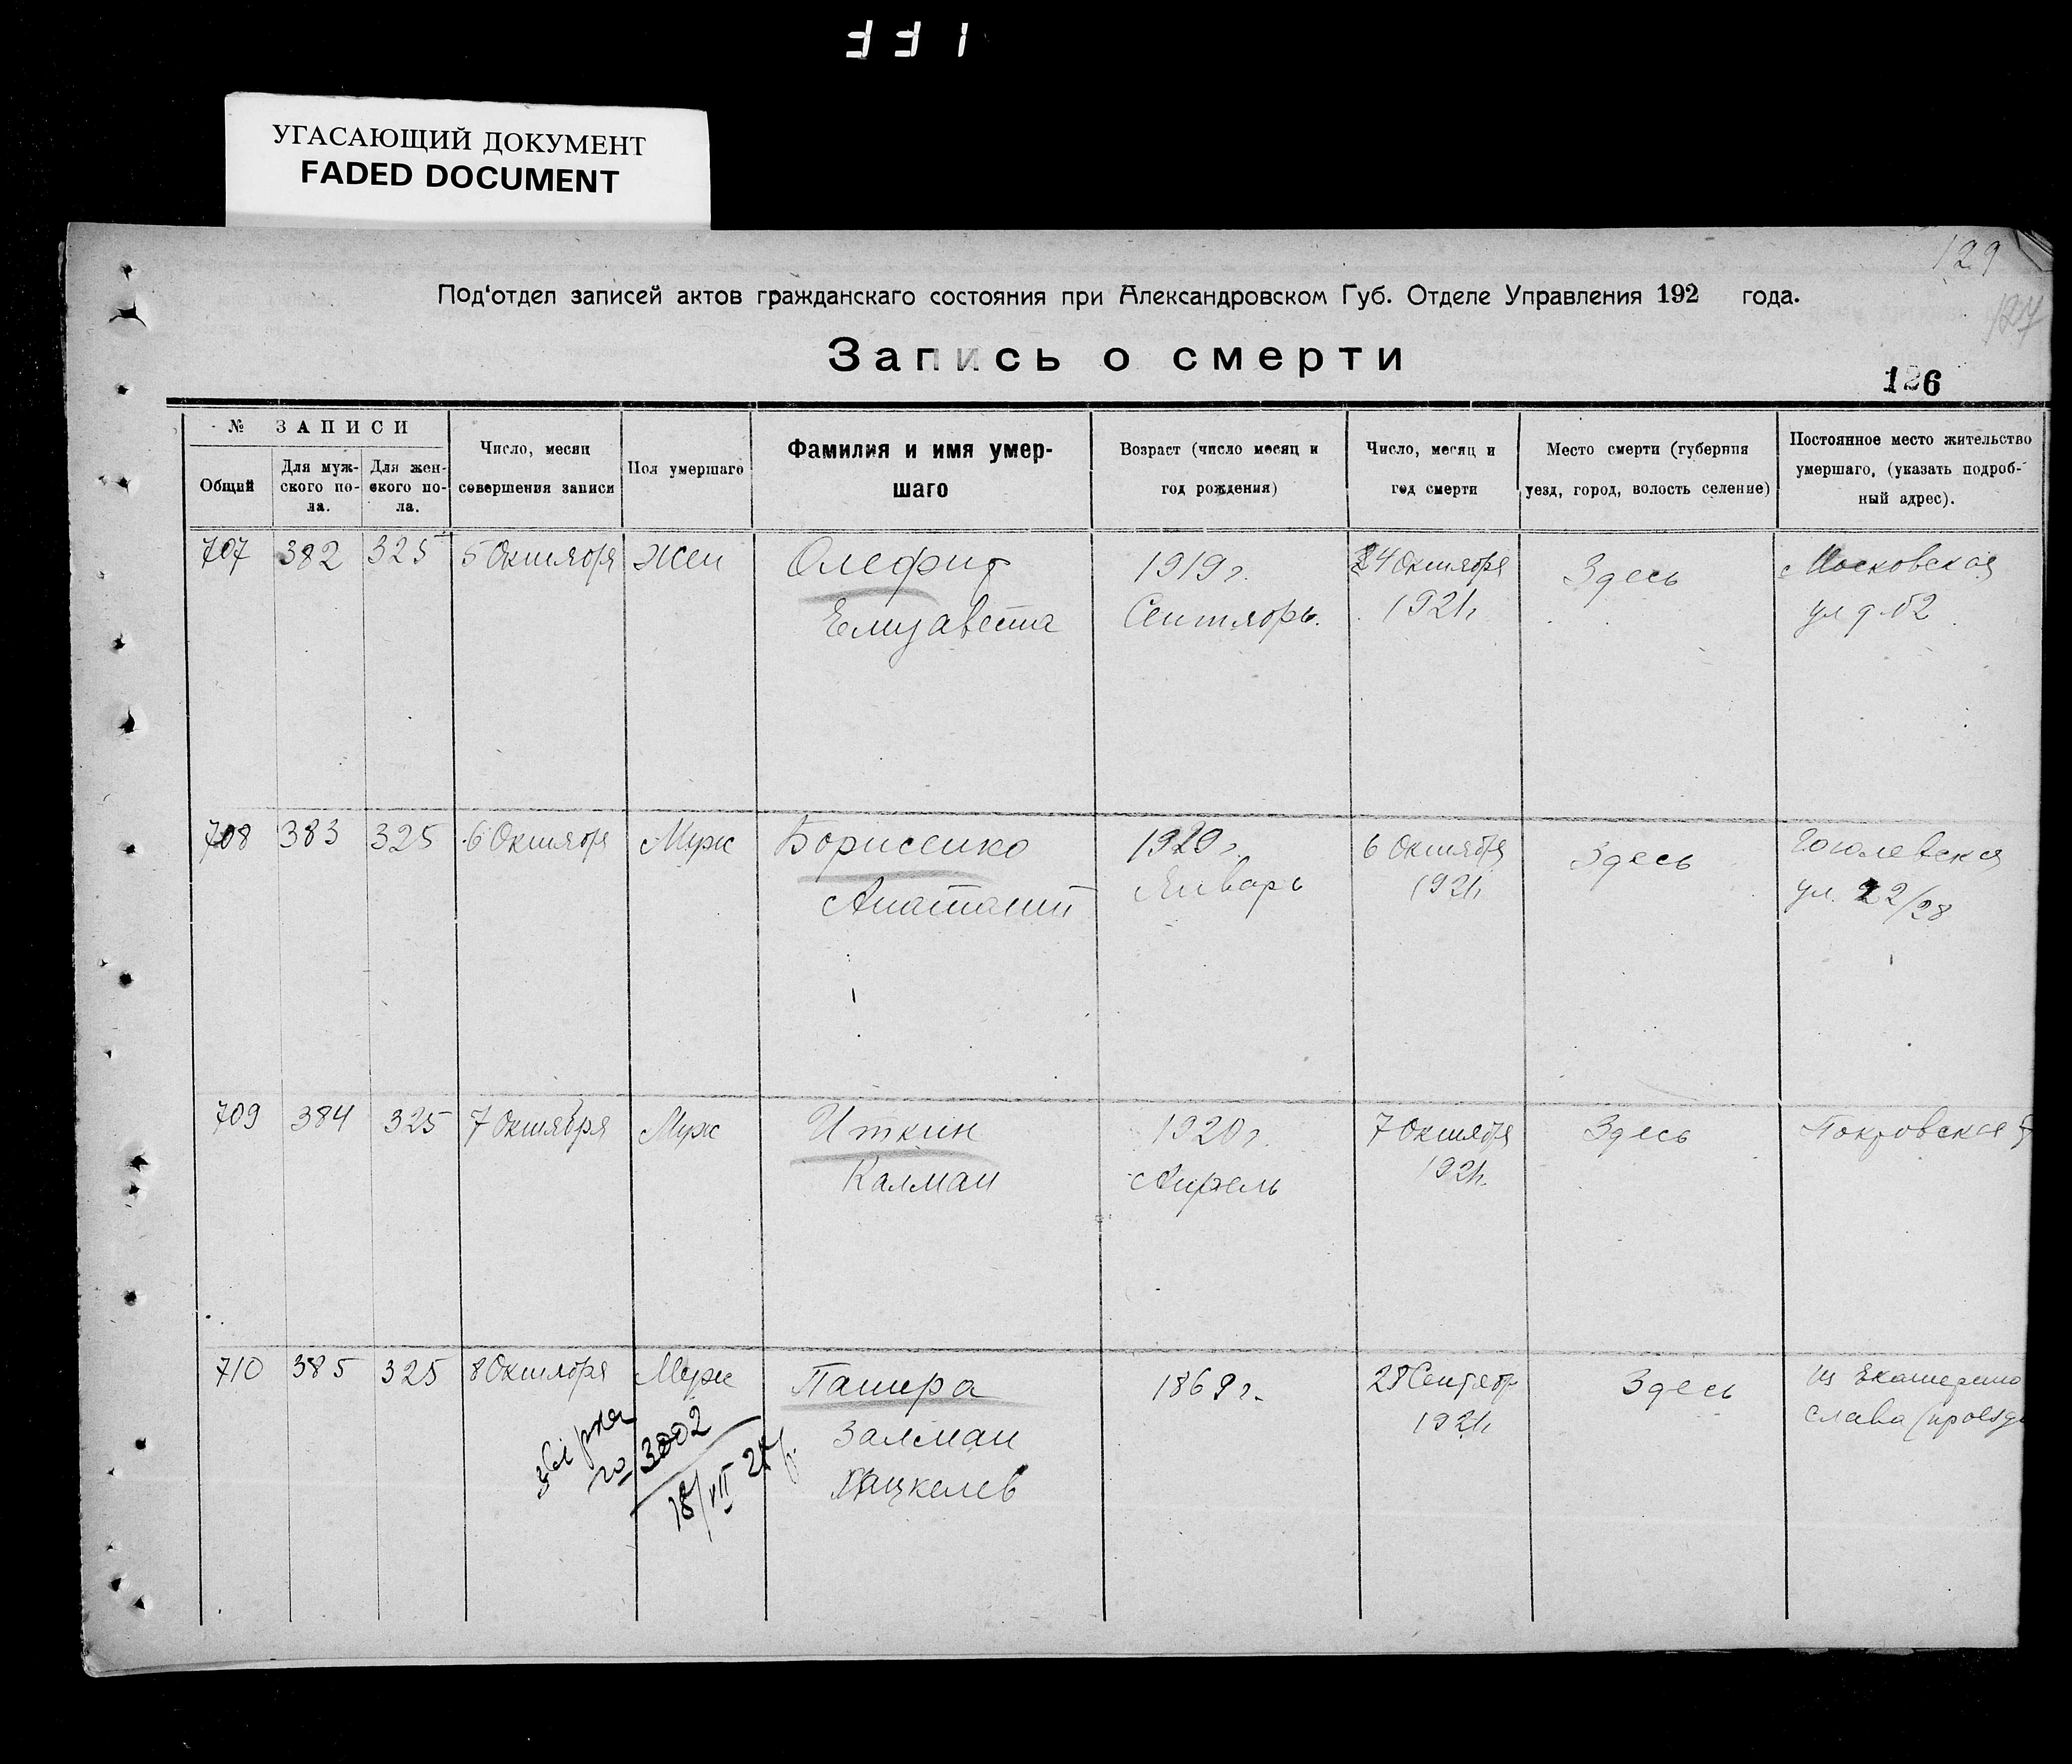 УГАСАЮЩИЙ ДОКУМЕНТ
FADED DOCUMENT
129
127
Под'отдел записей актов гражданскаго состояния при Александровском Губ. Отделе Управления 192 года.
Запись о смерти
126
№ ЗАПИСИ
Общий
Для муж-
ского по-
ла.
Для жен-
ского по-
ла.
Число, месяц
совершения записи
Пол умершаго
Фамилия и имя умер-
шаго
Возраст (число месяц и
год рождения)
Число, месяц и
год смерти
Место смерти (губерния
уезд, город, волость селение)
Постоянное место жительство
умершаго, (указать подроб-
ный адрес).
707 382 325 5 Октября Жен
Елизавета
1919 г.
Сентябрь.
4 Октября
1921г.
Здесь
Московская
ул д. 52
708 383 325 6 Октября Муж Борисенко
Анатолий
1920 г.
Январь
6 Октября
1921г.
Здесь
Гоголевская
ул. 22/28
709 384 325 7 Октября Муж Иткин
Калман
1920 г.
Апрель
7 Октября
1921г.
Здесь
Покровская
710 385 325 8 Октября Муж Пашера
Залман
1869 г.
28 Сентябр
1921г.
Здесь
из Екатерино
слава (проезд
3002
18/VII